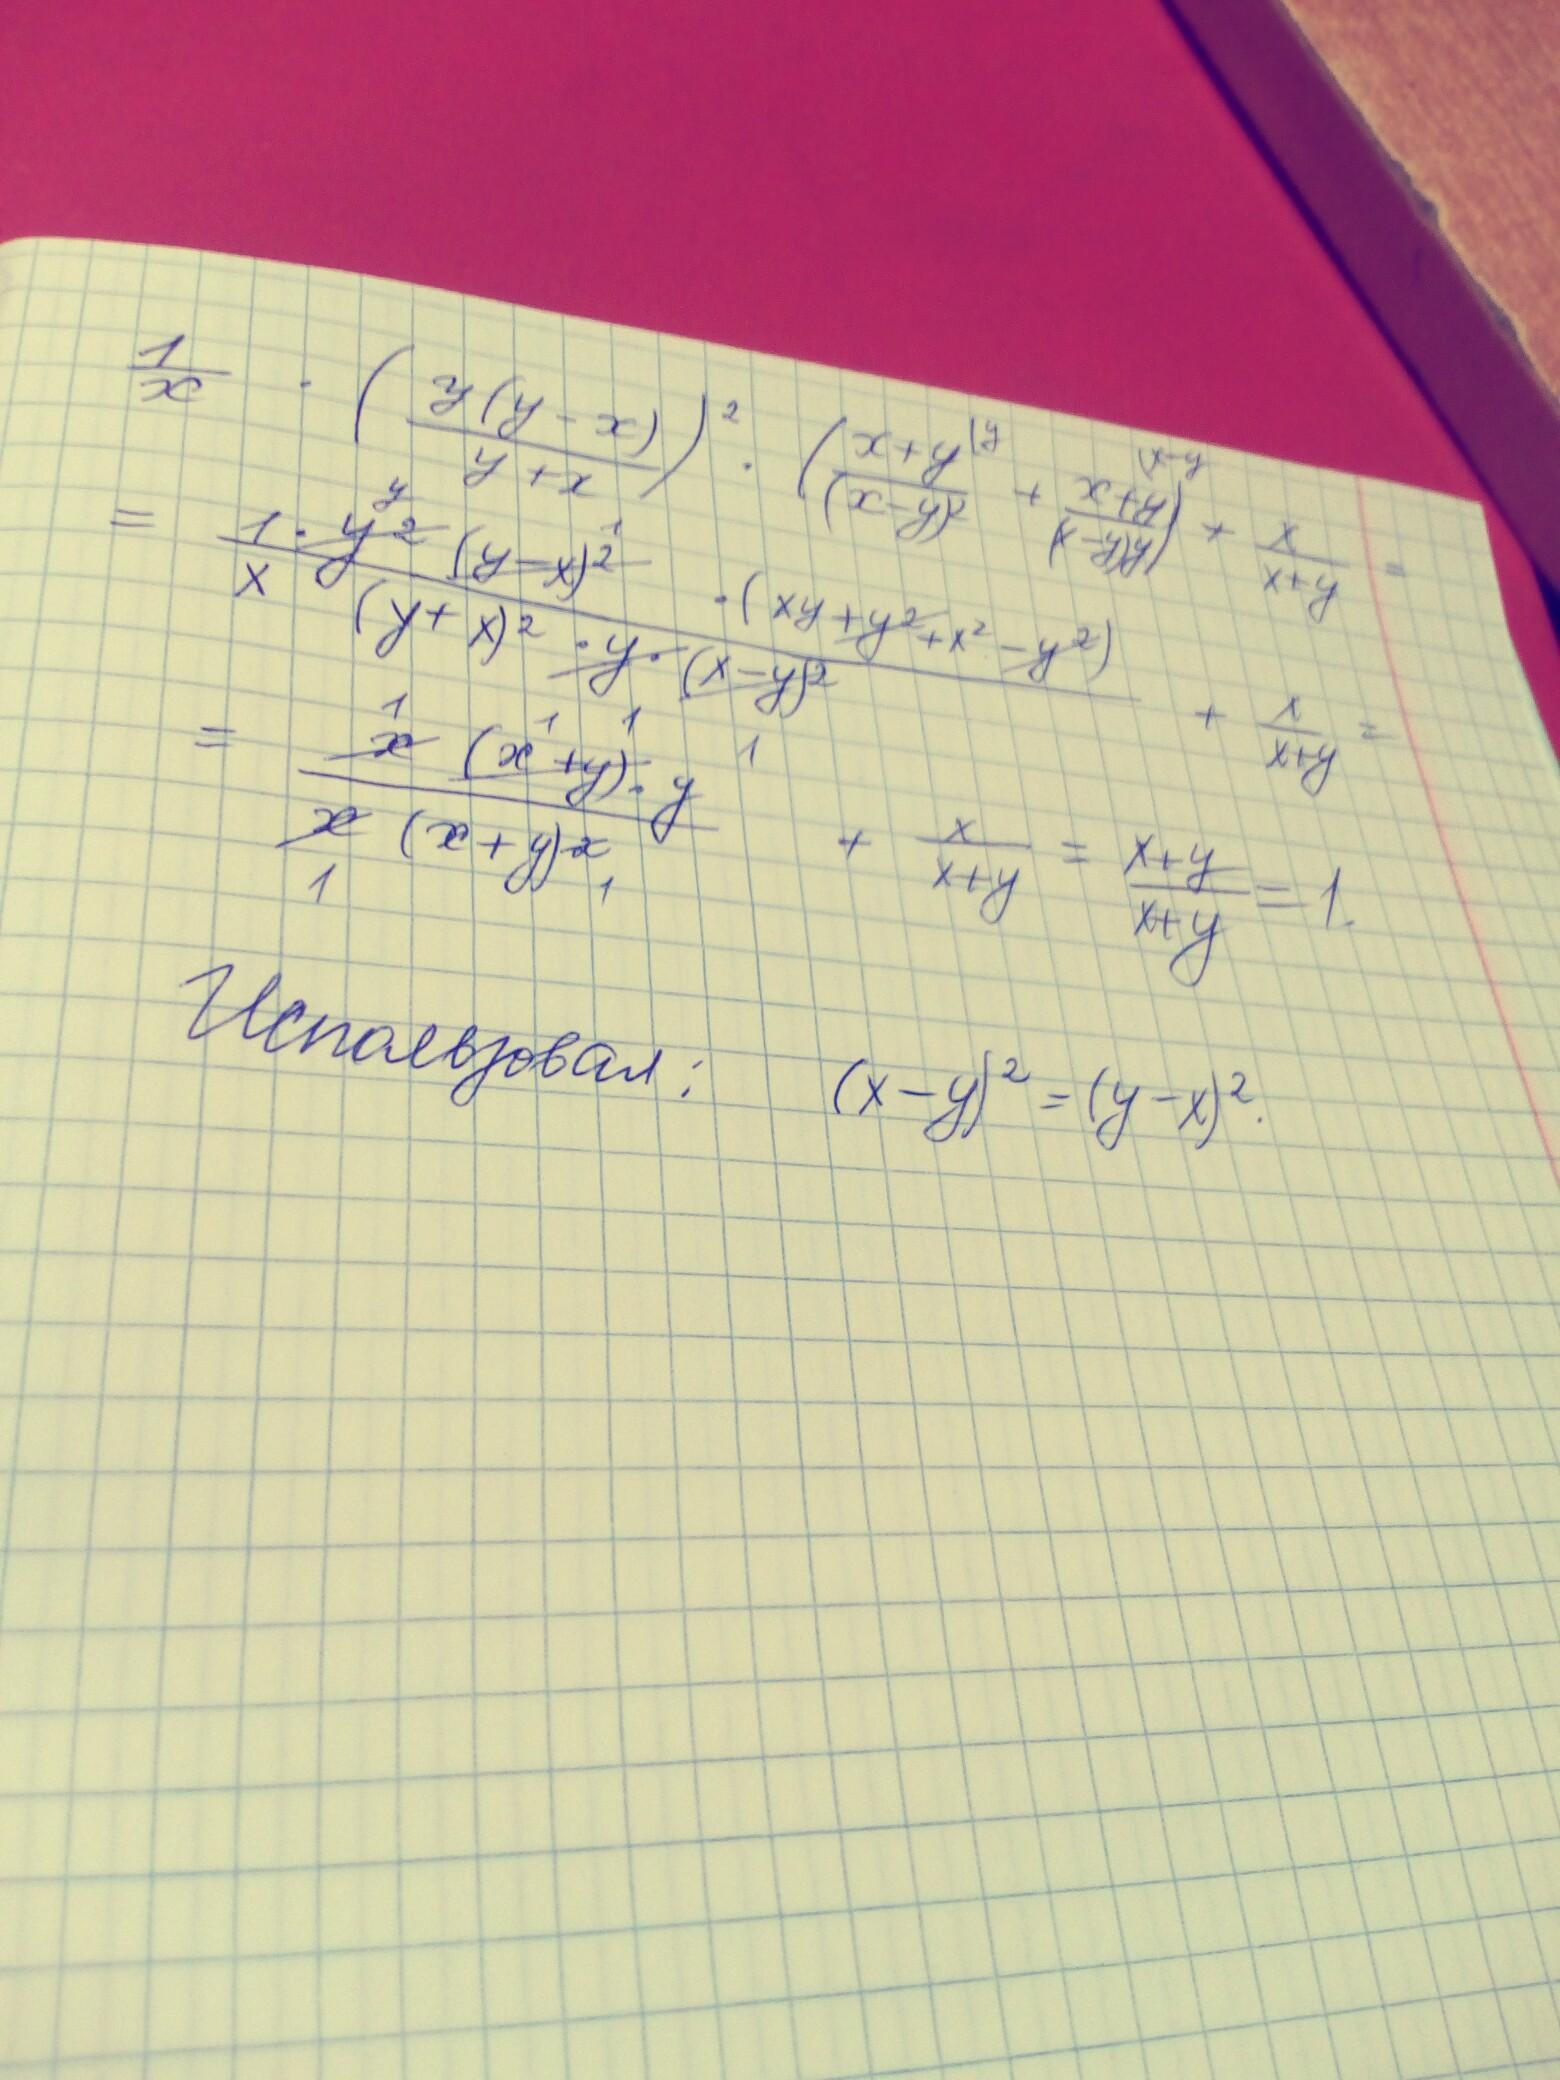 1/x · (y(y-x)/(y+x))² · ((x+y)/(x-y)² |y + (x+y)/((x-y)y) |x-y) + x/(x+y) =
= 1·y² y (y-x)² 1 · (xy+y²+x²-y²) / x (y+x)² · y · (x-y)² 1 + x/(x+y) =
= x 1 (x+y) 1 1 · y / x 1 (x+y)² 1 + x/(x+y) = (x+y)/(x+y) = 1.
Использовал: (x-y)² = (y-x)².